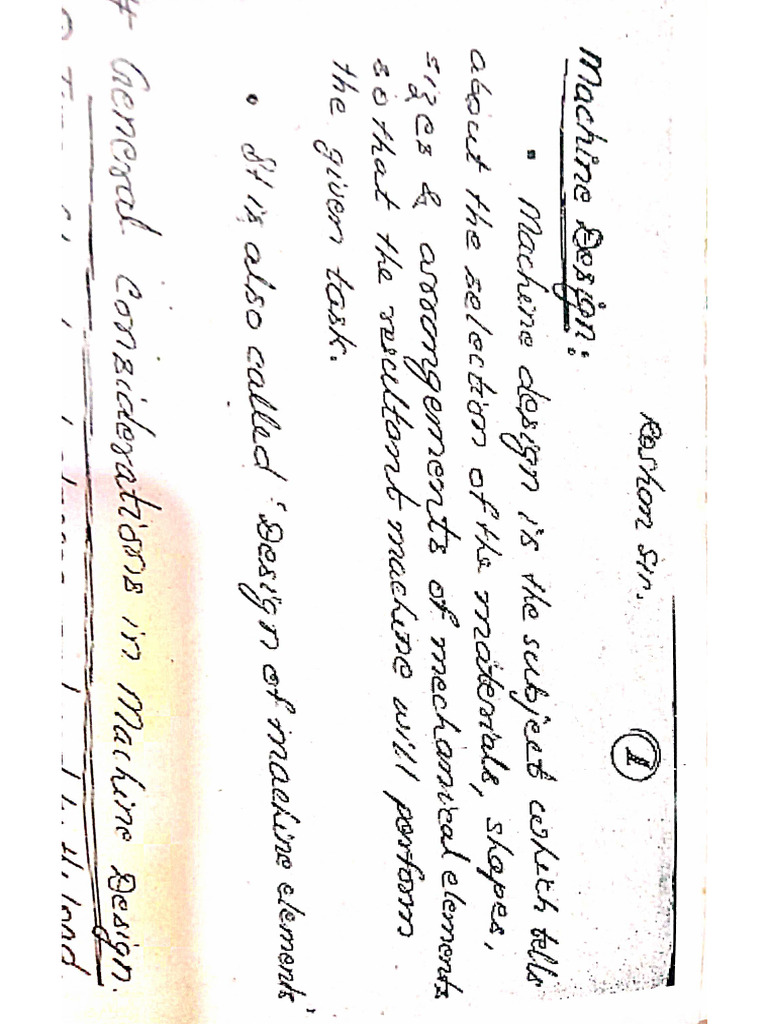 Roshan Sir.
1
Machine Design:
• Machine design is the subject which tells
about the selection of the materials, shapes,
sizes & arrangements of mechanical elements
so that the resultant machine will perform
the given task.
• It is also called 'Design of machine elements'
# General Considerations in Machine Design.
load